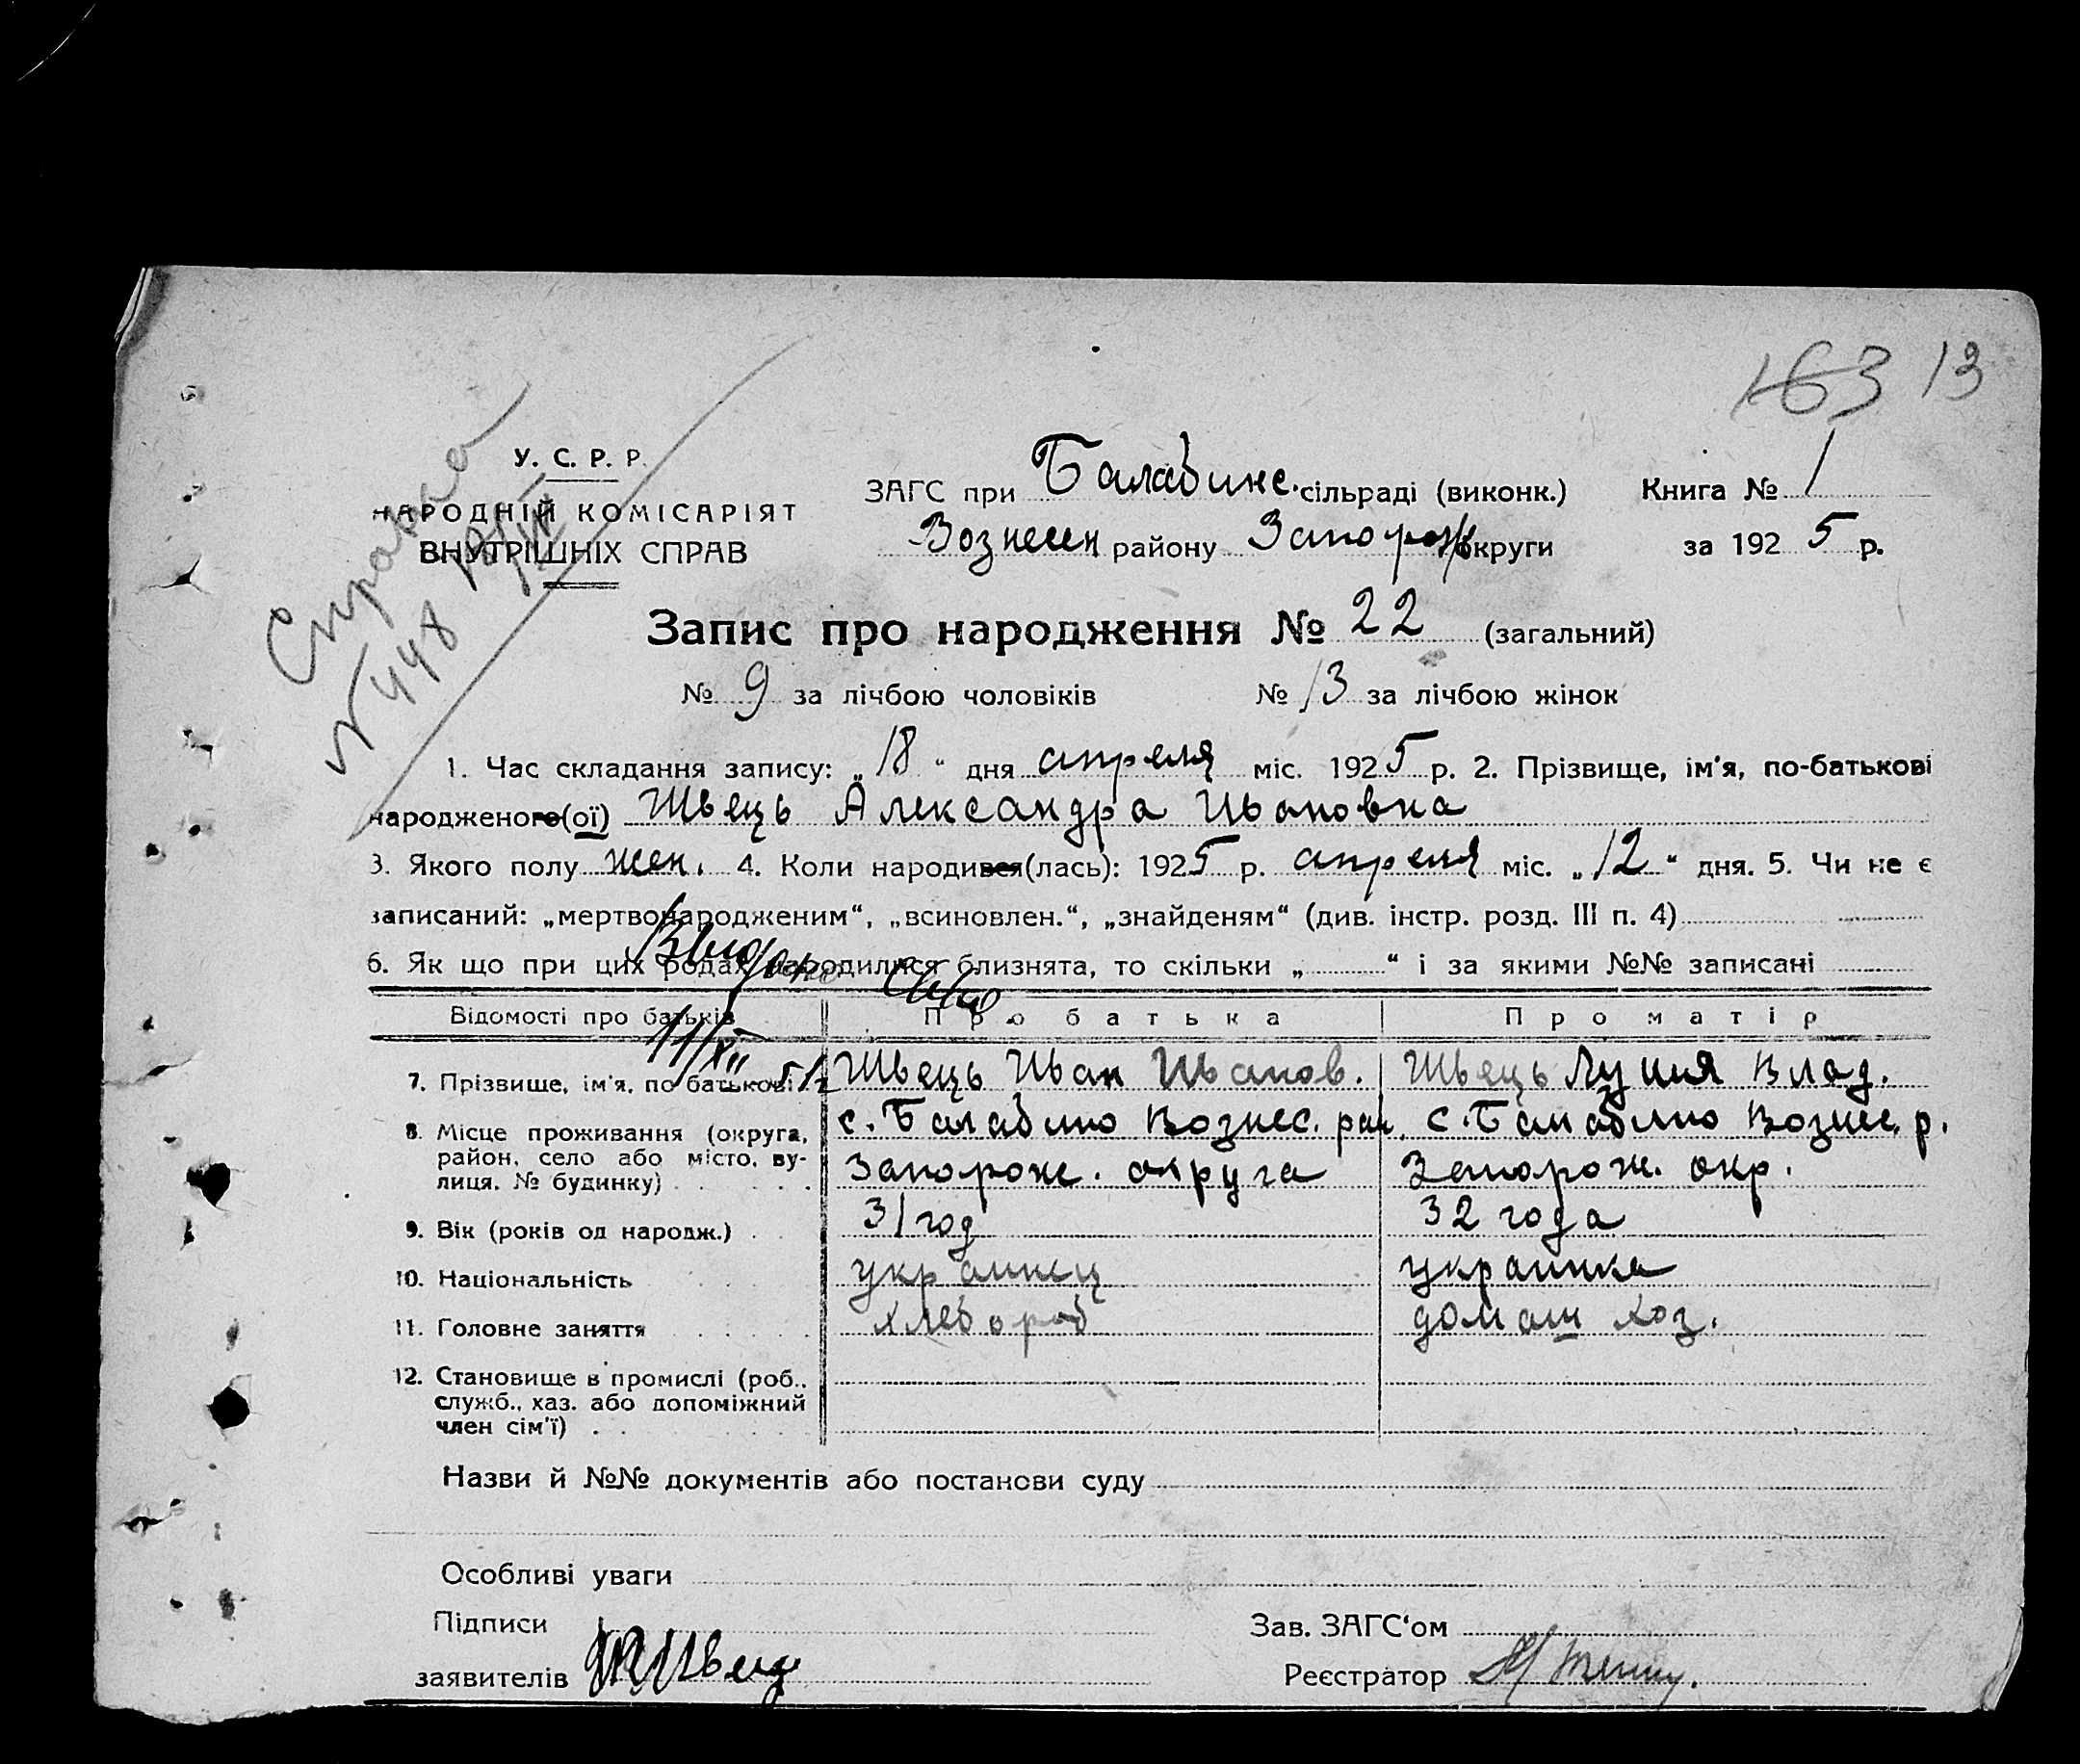 163 13
У. С. Р. Р.
НАРОДНІЙ КОМІСАРІЯТ
ВНУТРІШНІХ СПРАВ
Справка
№ 448
ЗАГС при Балабинс. сільраді (виконк.) Книга № 1
Вознесен району Запорож округи за 1925 р.
Запис про народження № 22 (загальний)
№ 9 за лічбою чоловіків № 13 за лічбою жінок
1. Час складання запису: „18“ дня апреля міс. 1925 р. 2. Прізвище, ім'я, по-батькові
народженого(ої) Швець Александра Ивановна
3. Якого полу жен. 4. Коли народився(лась): 1925 р. апреля міс. „12“ дня. 5. Чи не є
записаний: „мертвонародженим“, „всиновлен.“, „знайденям“ (див. інстр. розд. III п. 4)
6. Як що при цих родах народилися близнята, то скільки „ “ і за якими №№ записані
Выдано
11/XII 51
Відомості про батьків Про батька Про матір
7. Прізвище, ім'я, по батькові Швець Иван Иванов. Швець Лукия Влад.
8. Місце проживання (округа, с. Балабино Вознес. рай. с. Балабино Вознес. р.
район, село або місто, ву-
лиця, № будинку) Запорож. округа Запорож. окр.
9. Вік (років од народж.) 31 год 32 года
10. Національність украинец украинка
11. Головне заняття хлебороб домаш хоз.
12. Становище в промислі (роб.,
служб., хаз. або допоміжний
член сім'ї)
Назви й №№ документів або постанови суду
Особливі уваги
Підписи Зав. ЗАГС'ом
заявителів Швец Реєстратор